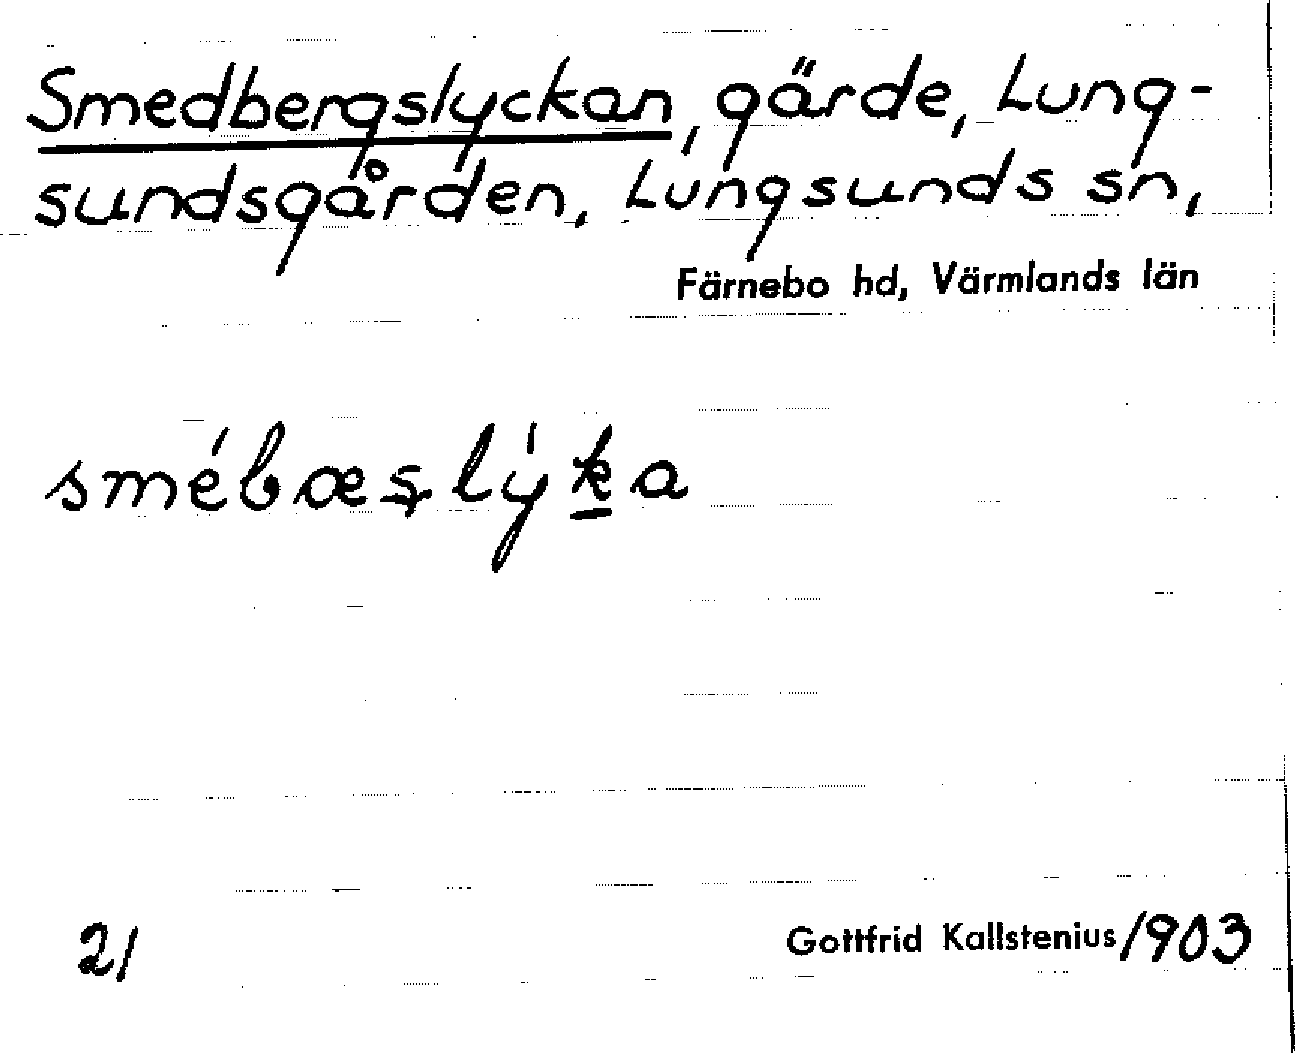 Smedbergslyckan, gärde, Lung-
sundsgården, Lungsunds sn,
Färnebo hd, Värmlands län
smébæşlýk̲a
21 Gottfrid Kallstenius 1903